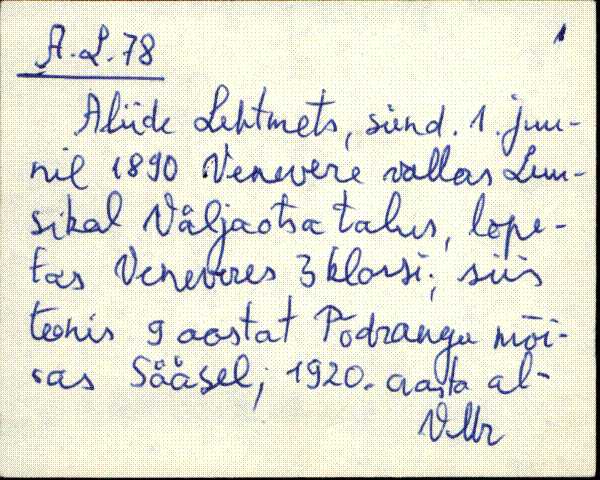 A.L.78
1
Aliide Lehtmets, sünd. 1. juu-
nil 1890 Venevere vallas Luu-
sikal Väljaotsa talus, lõpe-
tas Veneveres 3 klassi; siis
teenis 9 aastat Põdrangu mõi-
sas Sääsel; 1920. aasta al-
VMr